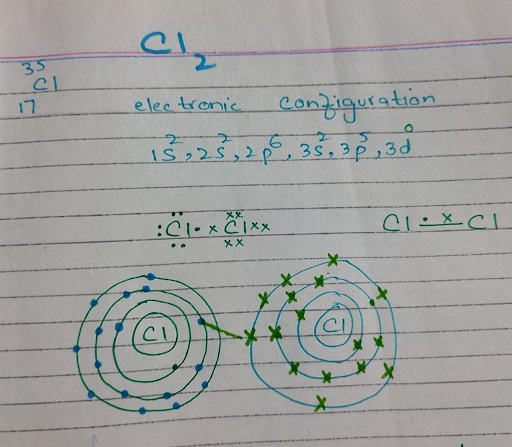 Cl₂
35
Cl
17
electronic configuration
1s², 2s², 2p⁶, 3s², 3p⁵, 3d⁰
:Cl· ×Cl×× Cl · × Cl
Cl Cl